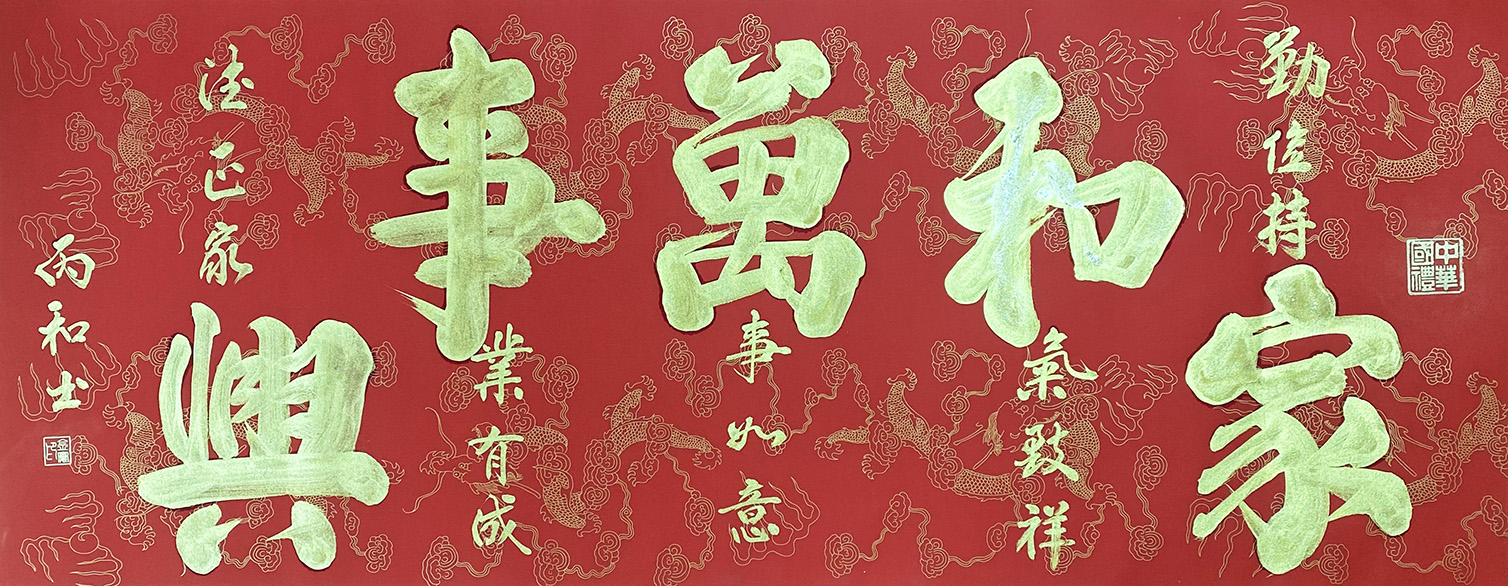 勤俭持家
中華
國禮
和氣致祥
萬事如意
事業有成
德正家興
丙和书